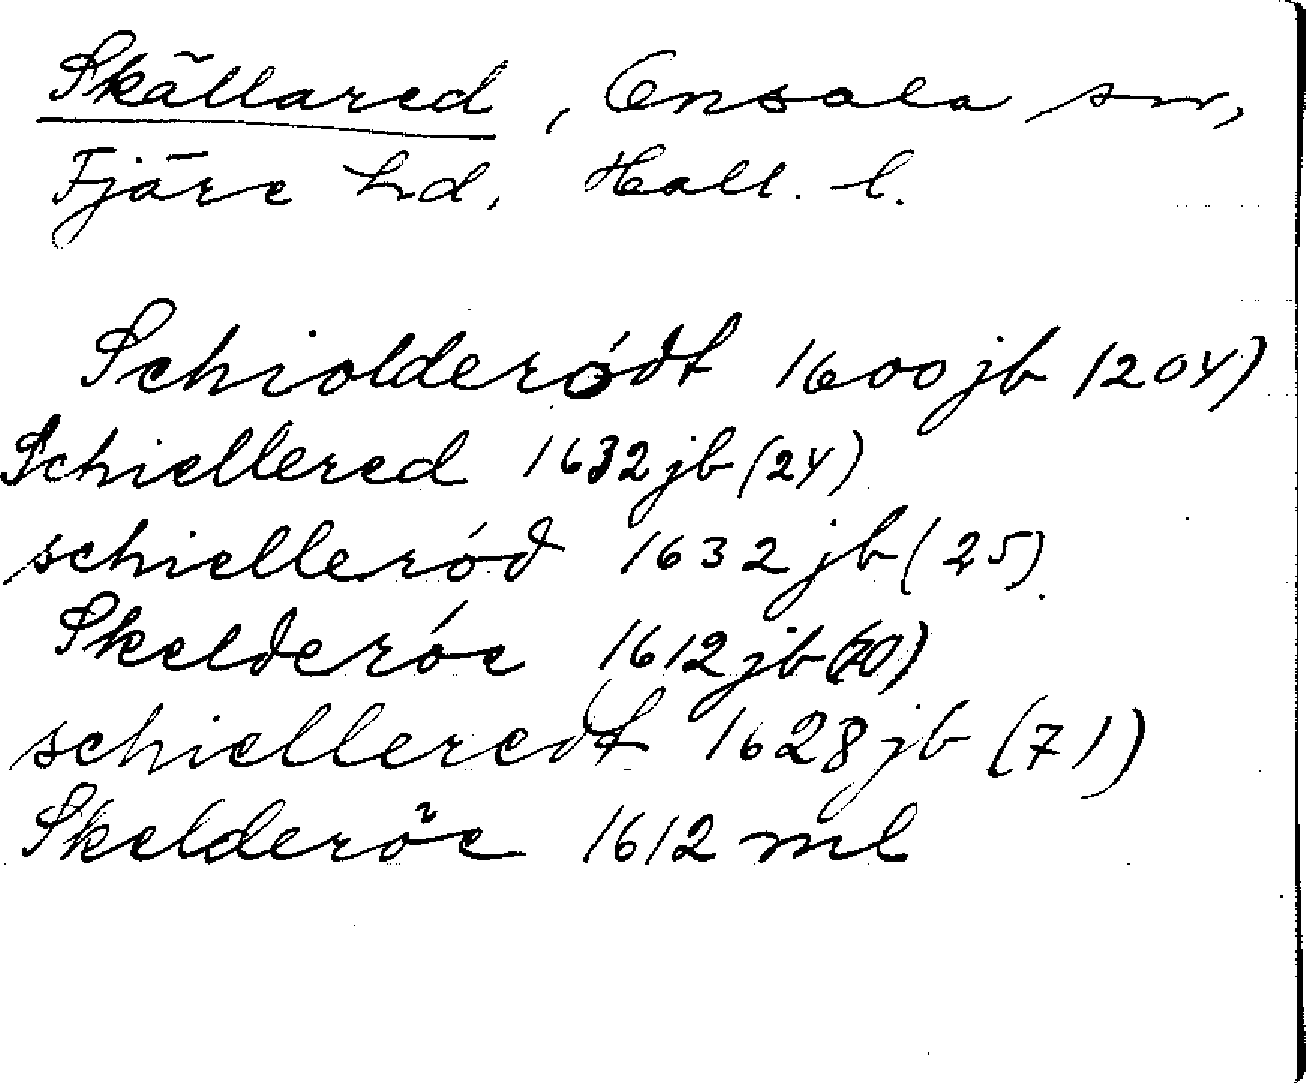 Skällared, Onsala sn,
Fjäre hd, Hall. l.
Schiolderódt 1600 jb (204)
Schiellered 1632 jb (24)
schielleród 1632 jb (25)
Skelderóe 1612 jb (70)
schielleredt 1628 jb (71)
Skelderöe 1612 ml